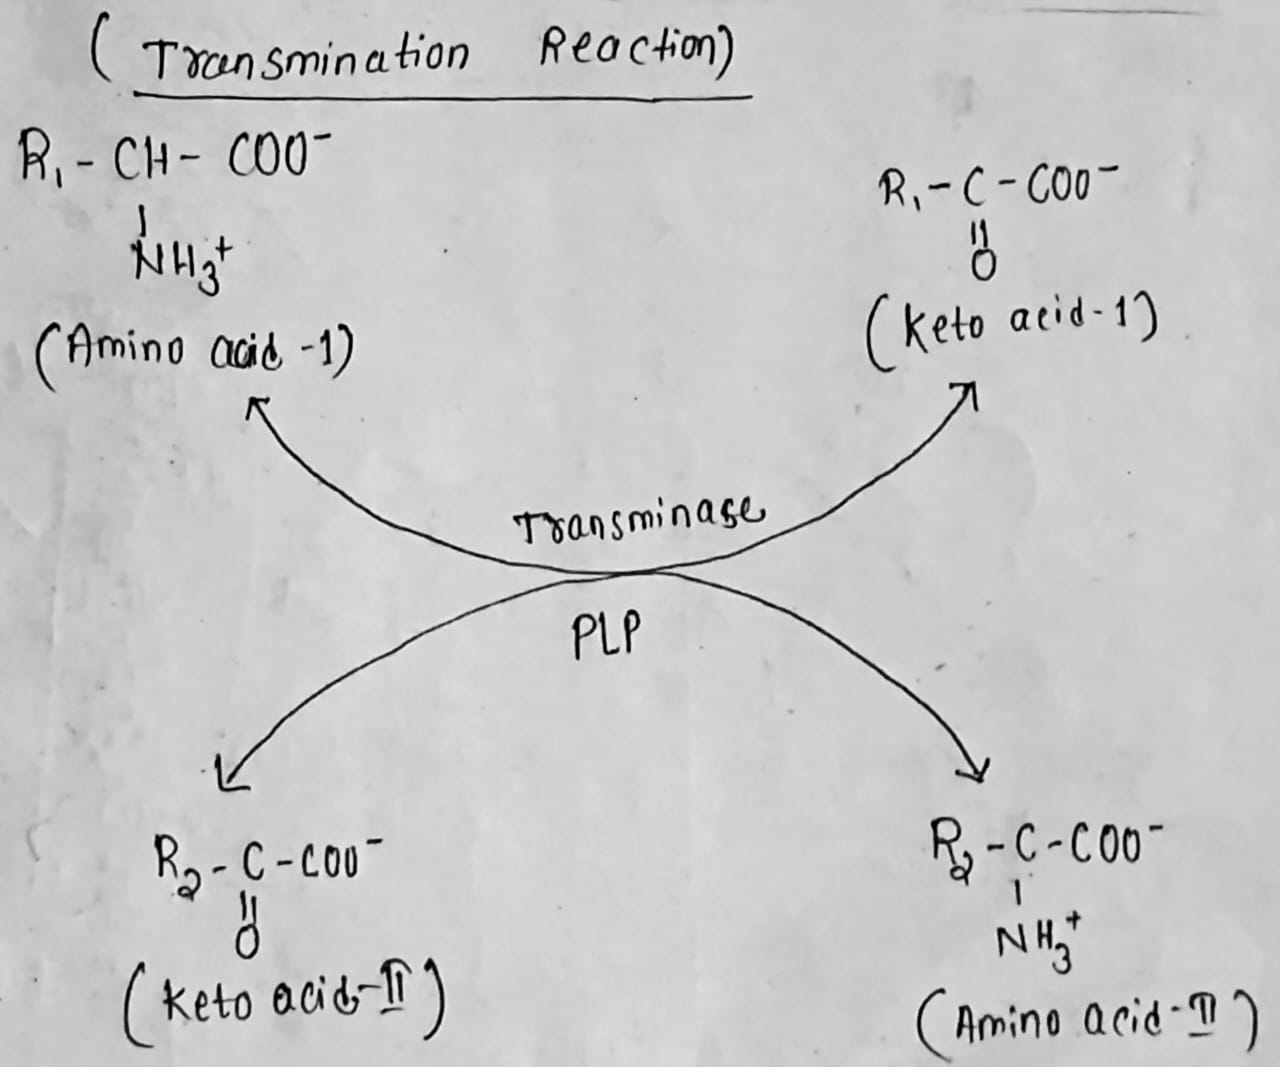 (Transmination Reaction)
R₁ - CH - COO⁻
NH₃⁺
(Amino acid -1)
R₁ - C - COO⁻
O
(Keto acid-1)
Transminase
PLP
R₂ - C - COO⁻
O
(Keto acid-II)
R₂ - C - COO⁻
NH₃⁺
(Amino acid-II)